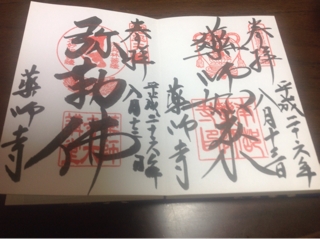 奉拝
平成二十六年
八月十三日
薬師如来
薬師寺
奉拝
平成二十六年
八月十三日
弥勒佛
薬師寺